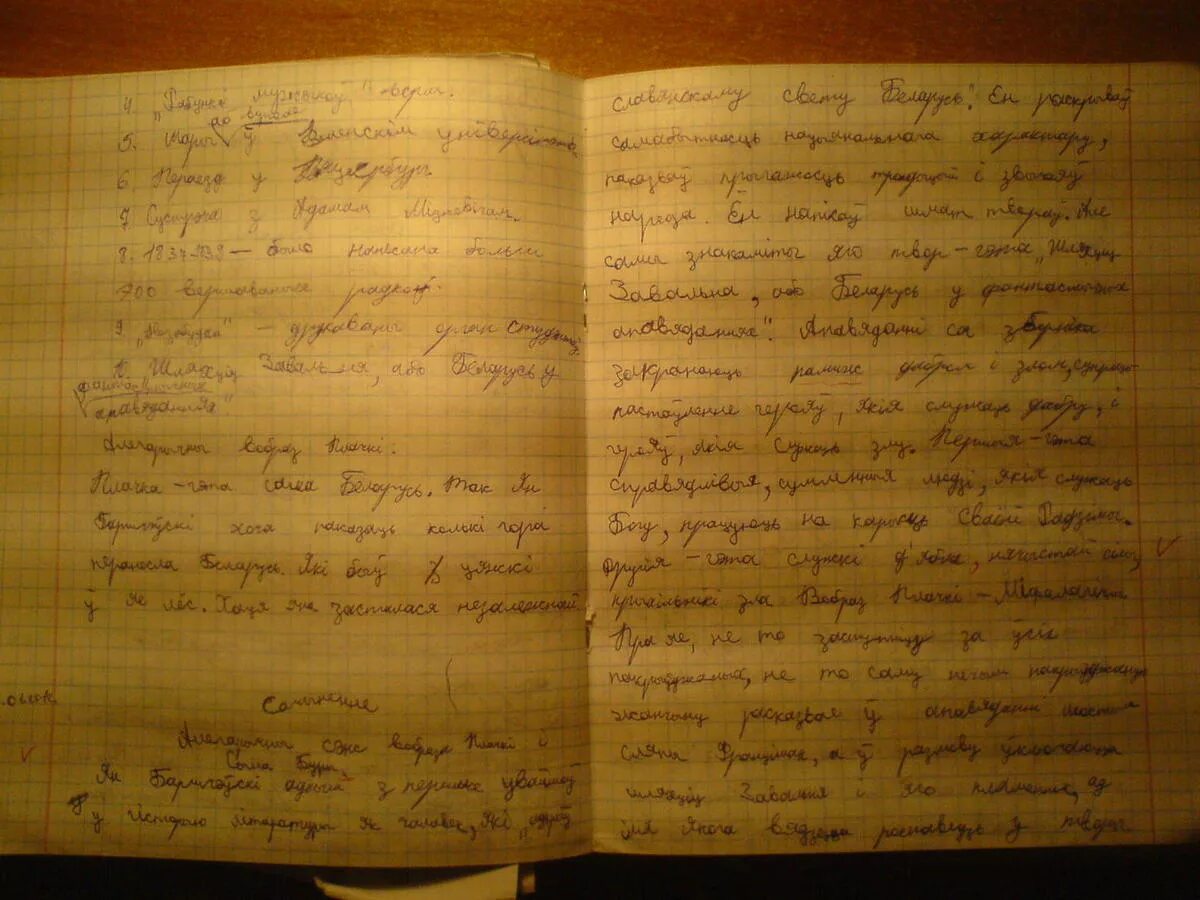 4. „Рабункі мужыкоў" - верш.
5. до вучобе
ў Віленскім універсітэце
6. Пераезд у Пецярбург.
7. Сустрэча з Адамам Міцкевічам.
8. 1837-1939 — было напісана больш
700 вершаваных радкоў.
9. „Незабудка" — друкаваны орган студэнтаў.
10. Шляхціц Завальня, або Беларусь у
фантастычных
апавяданнях"
Алегарычны вобраз Плачкі.
Плачка - гэта сама Беларусь. Так Ян
Баршчэўскі хоча паказаць колькі гора
перанесла Беларусь. Які быў цяжкі
ў яе лёс. Хаця яна засталася незалежнай.
Сачынение
Алегарычны сэнс вобраза Плачкі і
Сына Буры
Ян Баршчэўскі адзіны з першых увайшоў
у історыю літаратуры як чалавек, які „адкрыў
славянскаму свету Беларусь". Ён раскрываў
самабытнасць нацыянальнага характару,
паказваў прыгажосць традыцый і звычаяў
народа. Ён напісаў шмат твораў. Але
самы знакаміты яго твор - гэта „Шляхціц
Завальна, або Беларусь у фантастычных
апавяданнях". Апавяданні са зборніка
закранаюць паміж дабром і злом, супраць
пастаўленне герояў, якія служаць дабру, і
герояў, якія служаць злу. Першыя - гэта
справядлівыя, сумленныя людзі, якія служаць
Богу, працуюць на карысць сваёй Радзімы.
Другія - гэта служкі д'ябла, нячыстай сілы,
зла Вобраз Плачкі - Міфалагічны
Пра яе, не то заступніцу за ўсіх
пакрыўджаных, не то саму нечым пакрыўджаную
жанчыну расказвае ў апавяданні
сляпы Францішак, а ў размову ўключаюцца
шляхціц Завальня і яго пляменнік, ад
імя якога вядзецца росповедзь у творы.